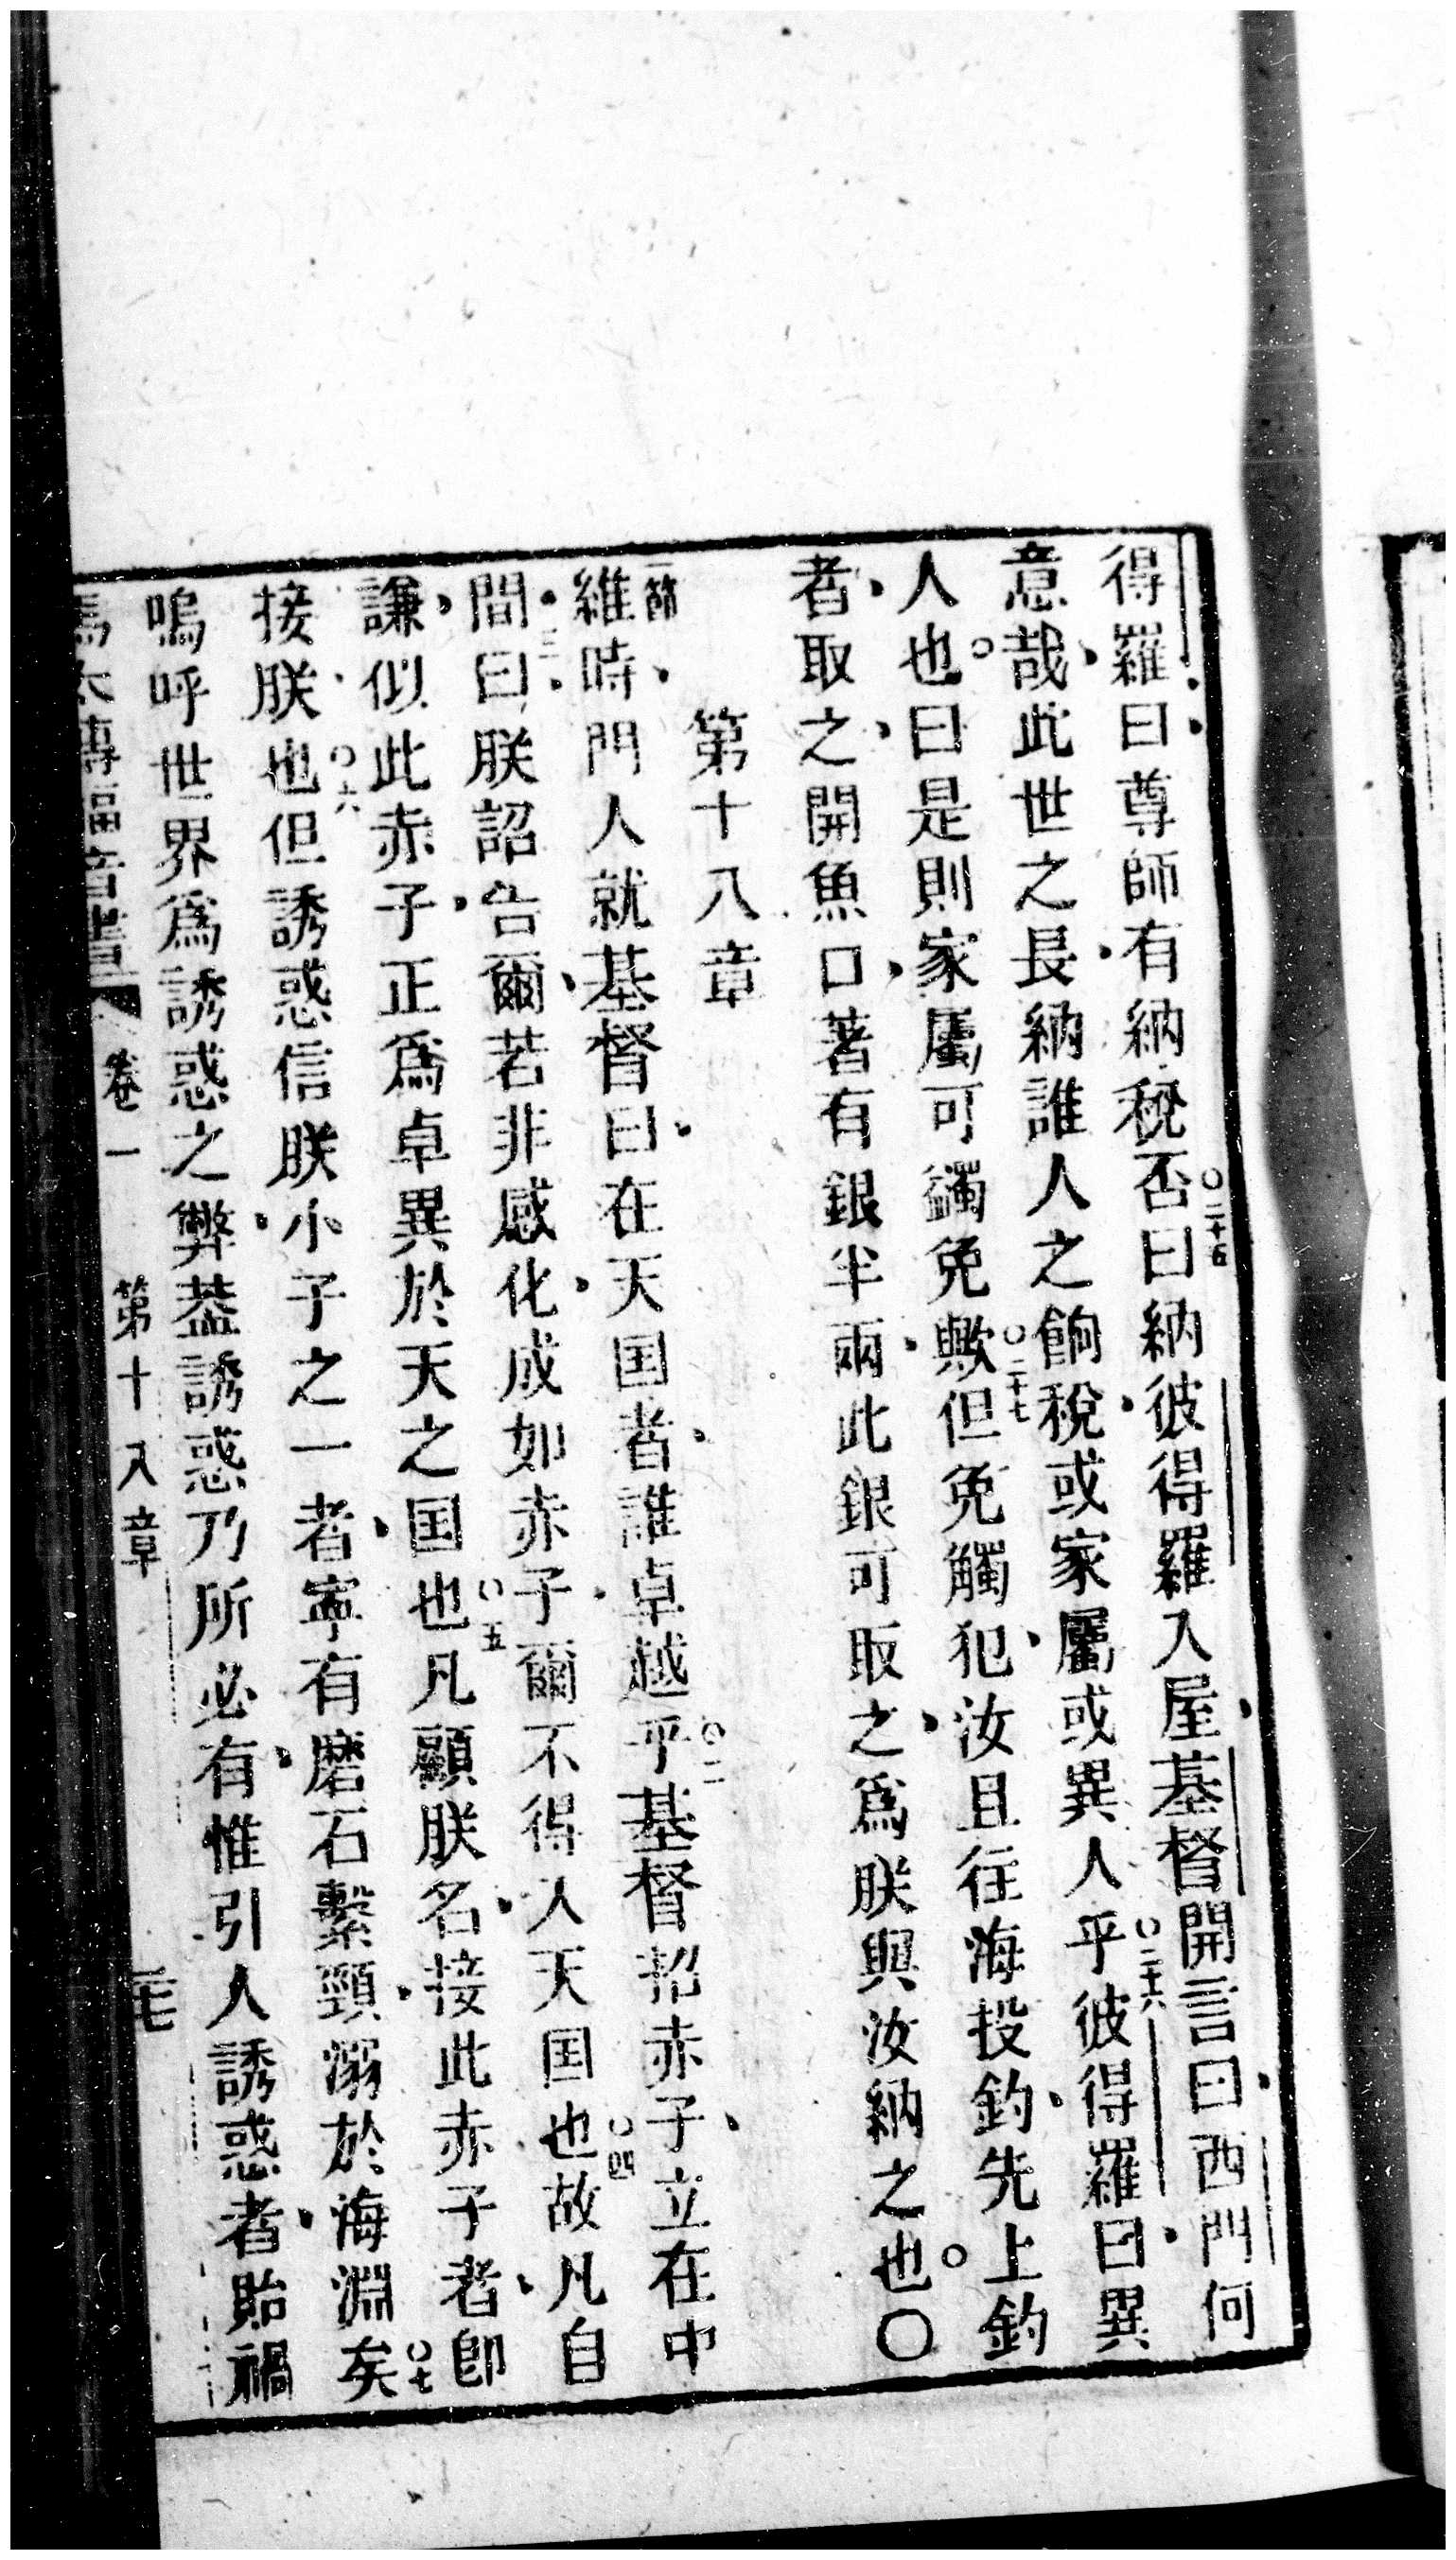 得羅曰尊師有納稅否○二十五曰納彼得羅入屋基督開言曰西門何
意哉此世之長納誰人之餉稅或家屬或異人乎○二十六彼得羅曰異
人也○曰是則家屬可蠲免歟○二十七但免觸犯汝且往海投釣先上釣
者取之開魚口著有銀半兩此銀可取之爲朕與汝納之也○〇
第十八章
一節維時門人就基督曰在天国者誰卓越乎○二基督招赤子立在中
間三曰朕詔告爾若非感化成如赤子爾不得入天国也○四故凡自
謙似此赤子正爲卓異於天之国也○五凡顧朕名接此赤子者卽
接朕也○六但誘惑信朕小子之一者寧有磨石繫頸溺於海淵矣○七
嗚呼世界爲誘惑之弊葢誘惑乃所必有惟引人誘惑者貽禍
馬太傳福音書 卷一 第十八章 二十七